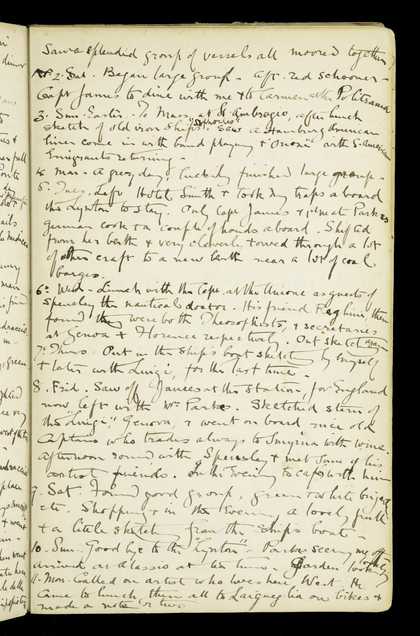 Saw a splendid group of vessels all moored together
2. Sat. Began large group - aft. red schooner -
Capt James to dine with me & to Carmen at the Politeama
3. Sun. Easter. To Mass, at St Ambrogio, after lunch
sketch of old iron ship. Saw a Hamburg American
liner come in with band playing & with S. American
Emigrants returning -
4. Mon - A grey day, luckily finished large group -
5. Tues. Left Hotel Smith & took my traps aboard
the Lynton to stay. Only Capt James & 1st mate Parkes
German cook & a couple of hands aboard. Shifted
from her berth & very cleverly towed through a lot
of other craft to a new berth near a lot of coal
barges.
6. Wed - Lunch with the Capt. at the Unione as guests of
Spensley the nautical doctor. His friend then
found they were both Theosophists, & secretaries
at Genoa & Florence respectively. Out sketching
7. Thurs. Out in the ship's boat sketching by myself
& later with Luigi, for the last time -
8. Frid. Saw off James at the station, for England
now left with Mr Parkes. Sketched stern of
the "Luigi", Genova, & went on board, nice old
Captain who trades always to Smyrna with wine.
afternoon round with Spensley & met some of his
artist friends. In the evening to café with him
9. Sat Found good group, green & white brig
etc. Shopping & in the evening, a lovely finish
& a little sketch from the ship's boat -
10. Sun. Good bye to the "Lynton" - Parkes seeing me off
arrived at Alassio at ten Garden looking lovely
11. Mon. Called on artist who lives here, West. He
came to lunch, then all to Laigueglia on bikes &
made a note or two